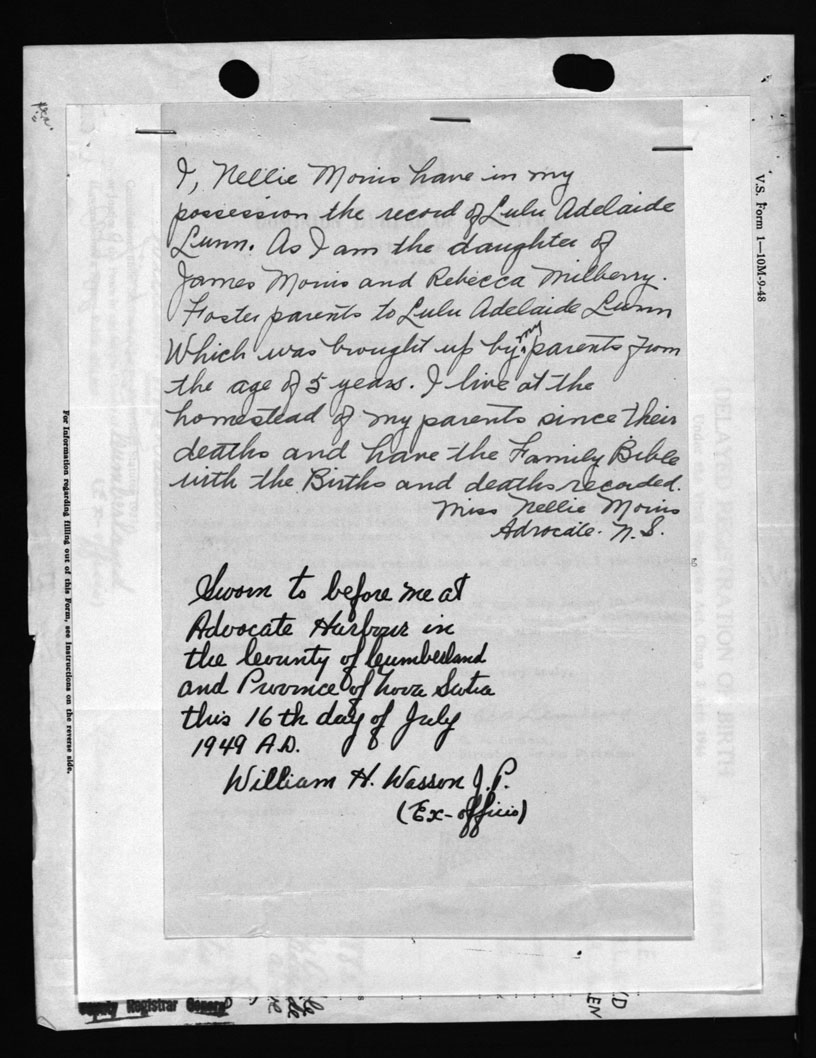 I, Nellie Morris have in my
possession the record of Lulu Adelaide
Lunn. As I am the daughter of
James Morris and Rebecca Milberry.
Foster parents to Lulu Adelaide Lunn
Which was brought up by my parents from
the age of 5 years. I live at the
homestead of my parents since their
deaths and have the Family Bible
with the Births and deaths recorded.
Miss Nellie Morris
Advocate. N.S.
Sworn to before me at
Advocate Harbour in
the County of Cumberland
and Province of Nova Scotia
this 16th day of July
1949 A.D.
William H. Wasson J.P.
(Ex-officio)
V.S. Form 1—10M-9-48
For Information regarding filling out of this Form, see Instructions on the reverse side.
DELAYED REGISTRATION OF BIRTH
Deputy Registrar General